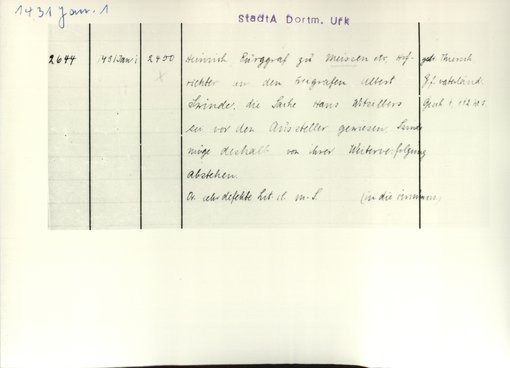 1431 Jan. 1
StadtA Dortm. Urk
2644 1431 Jan 1 2400 Heinrich Burggraf zu Meissen etc, Hof-
richter an den Freigrafen Albert
Swinde, die Sache Hans
sei vor den Aussteller gewesen,
möge deshalb von ihrer Weiterverfolgung
abstehen.
Or. sehr defekte lit. cl. m. S.
gdr. Thiersch
Z. f. vaterländ.
Gesch 1, 112